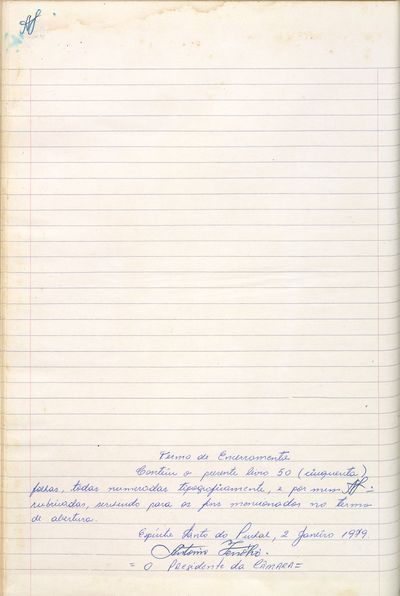 Af
Termo de Encerramento
Contém o presente livro 50 (cinquenta)
folhas, todas numeradas tipograficamente, e por mim Af =
rubricadas, servindo para os fins mencionados no termo
de abertura.
Espírito Santo do Pinhal, 2 Janeiro 1979.
Antonio
= O Presidente da CÂMARA =